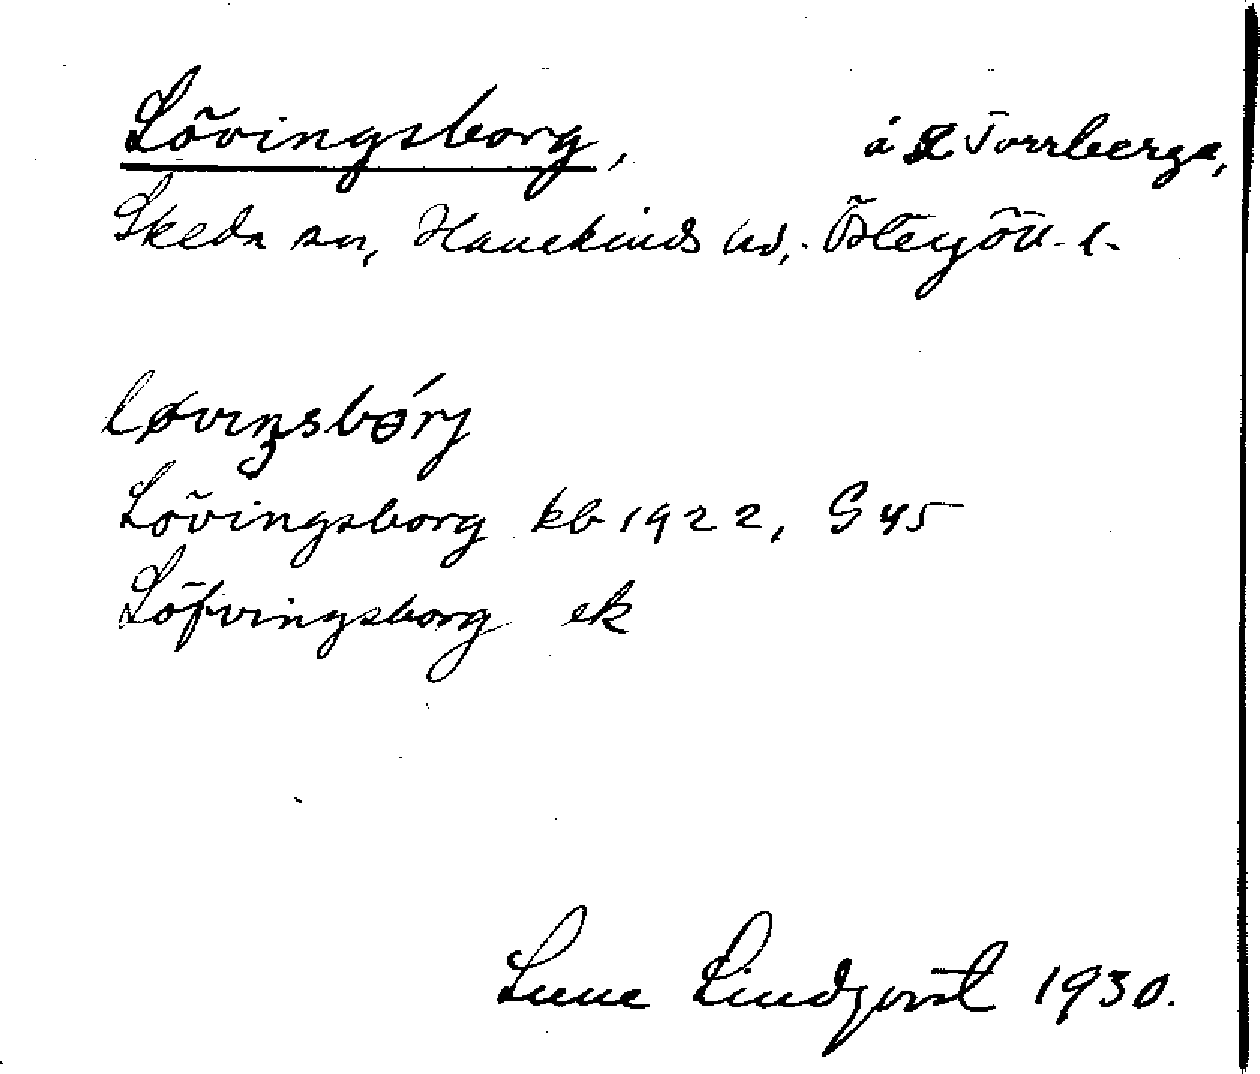 Lövingsborg, å St Torrberga,
Skeda sn, Hanekinds hd, Östergötl. l.
løvıŋsbórj
Lövingsborg kb 1922, G 45
Löfvingsborg ek
Sune Lindqvist 1930.